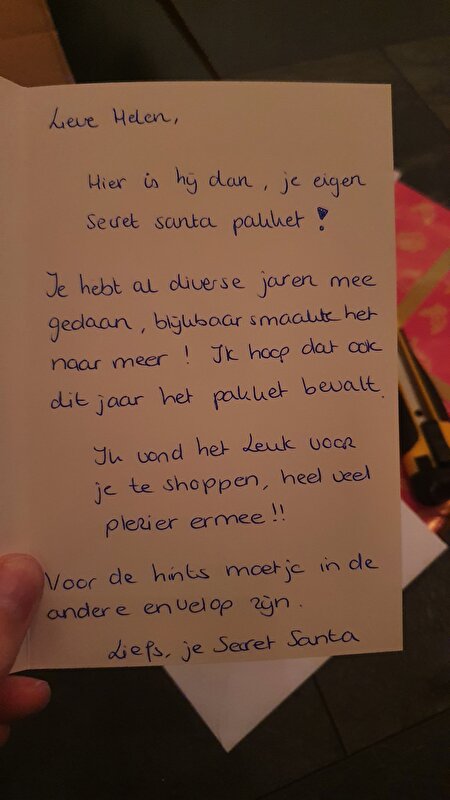 Lieve Helen,
Hier is hij dan, je eigen
Secret santa pakket!
Je hebt al diverse jaren mee
gedaan, blijkbaar smaakte het
naar meer! Ik hoop dat ook
dit jaar het pakket bevalt.
Ik vond het leuk voor
je te shoppen, heel veel
plezier ermee!!
Voor de hints moet je in de
andere envelop zijn.
Liefs, je Secret Santa